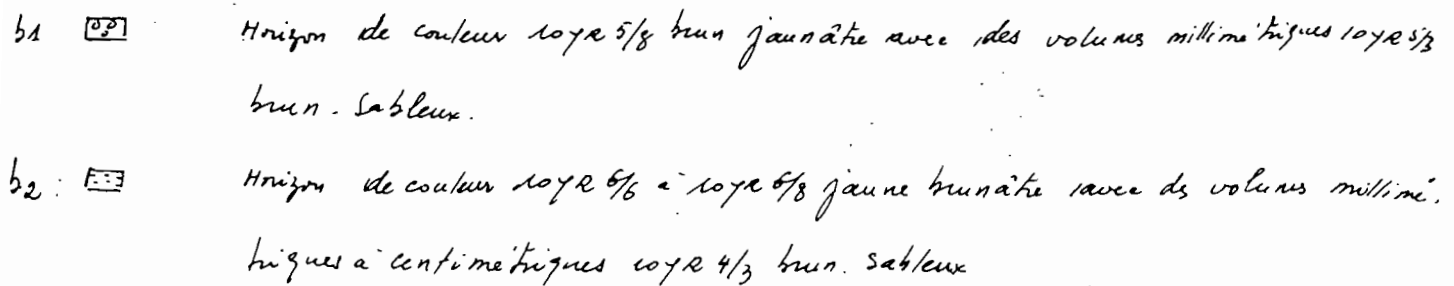 b1 Horizon de couleur 10YR 5/8 brun jaunâtre avec des volumes millimétriques 10YR 5/3
brun. Sableux.
b2 : Horizon de couleur 10YR 6/6 à 10YR 6/8 jaune brunâtre avec des volumes millimé-
triques à centimétriques 10YR 4/3 brun. Sableux